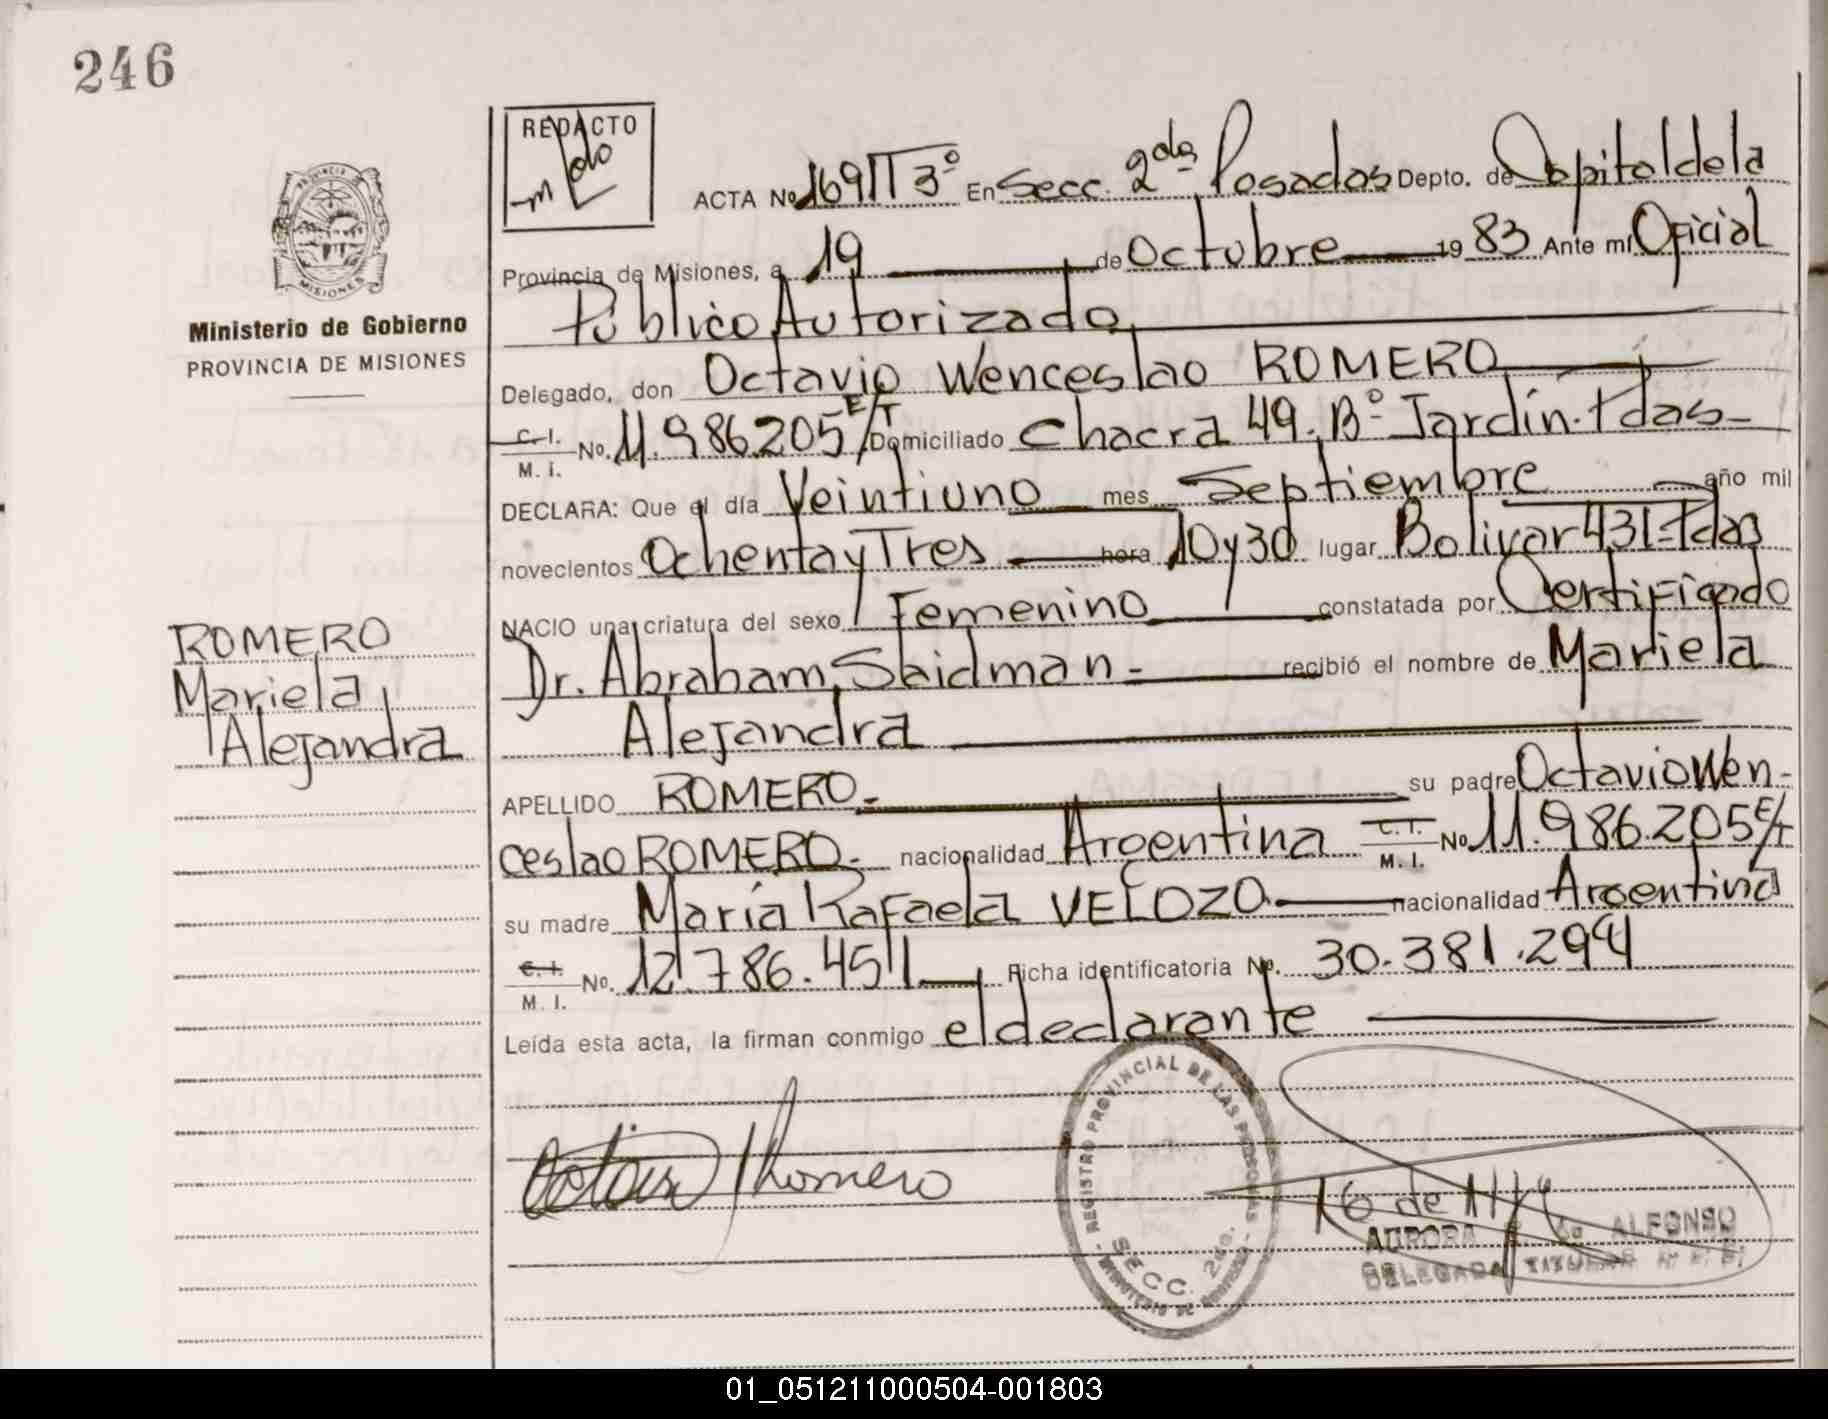 246
REDACTO
ACTA No 1691 T 3º En Secc. 2da Posadas Depto. de Capital de la
Provincia de Misiones, a 19 de Octubre 19 83 Ante mí Oficial
Público Autorizado
Delegado, don Octavio Wenceslao ROMERO
C. I. M. I. No. 11.986.205 E/T Domiciliado Chacra 49. Bº Jardín. Pdas-
DECLARA: Que el día Veintiuno mes Septiembre año mil
novecientos Ochenta y Tres hora 10 y 30 lugar Bolivar 431-Pdas
NACIO una criatura del sexo Femenino constatada por Certificado
Dr. Abraham Saidman - recibió el nombre de Mariela
Alejandra
APELLIDO ROMERO.- su padre Octavio Wen-
ceslao ROMERO.- nacionalidad Argentina C. I. M. I. No 11.986.205 E/T
su madre María Rafaela VELOZO.- nacionalidad Argentina
C. I. M. I. No. 12.786.451 Ficha identificatoria No. 30.381.294
Leída esta acta, la firman conmigo el declarante
PROVINCIA
MISIONES
Ministerio de Gobierno
PROVINCIA DE MISIONES
ROMERO
Mariela
Alejandra
Romero
REGISTRO PROVINCIAL DE LAS PERSONAS
SECC. 2da.
AURORA ALFONSO
DELEGADA TITULAR
01_051211000504-001803